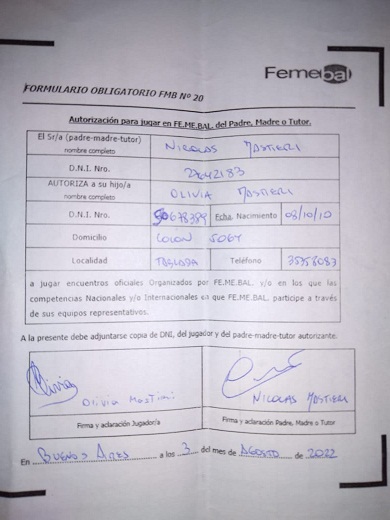 Femebal
FORMULARIO OBLIGATORIO FMB Nº 20
Autorización para jugar en FE.ME.BAL. del Padre, Madre o Tutor.
El Sr/a (padre-madre-tutor)
nombre completo
NICOLAS MASTIERI
D.N.I. Nro.
AUTORIZA a su hijo/a
nombre completo
OLIVIA MASTIERI
D.N.I. Nro.
Fcha. Nacimiento 03/10/10
Domicilio
COLON
Localidad
Teléfono
a jugar encuentros oficiales Organizados por FE.ME.BAL. y/o en los que las
competencias Nacionales y/o Internacionales en que FE.ME.BAL. participe a través
de sus equipos representativos.
A la presente debe adjuntarse copia de DNI, del jugador y del padre-madre-tutor autorizante.
Olivia
NICOLAS MASTIERI
Firma y aclaración Jugador/a
Firma y aclaración Padre, Madre o Tutor
En BUENOS AIRES a los 3 del mes de AGOSTO de 2022